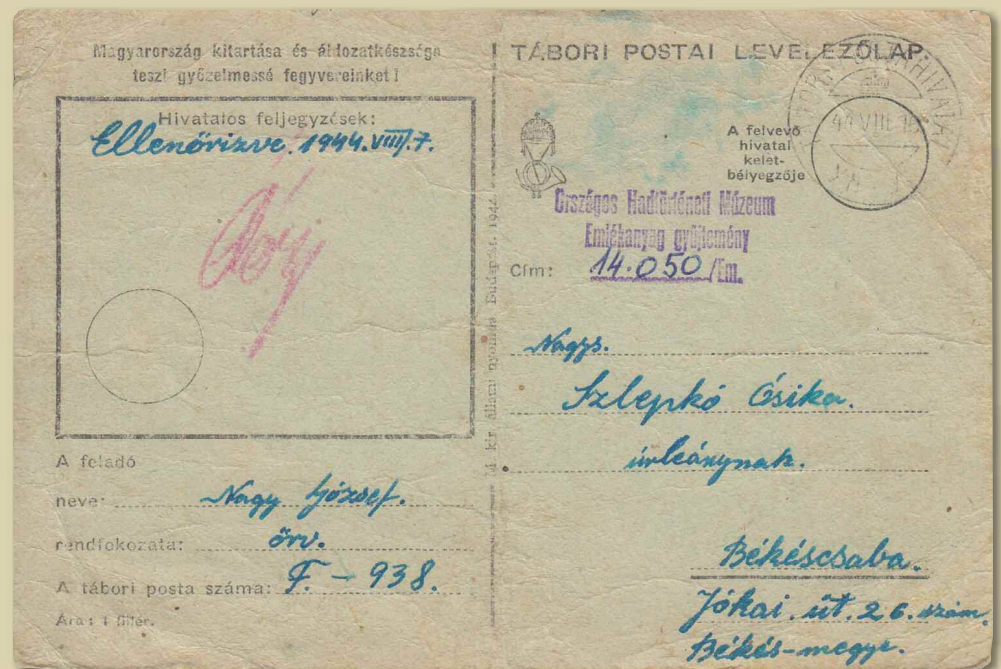 Magyarország kitartása és áldozatkészsége
teszi győzelmessé fegyvereinket!
Hivatalos feljegyzések:
Ellenőrizve. 1944. VIII/7.
A feladó
neve: Nagy József.
rendfokozata: őrv.
A tábori posta száma: F. - 938.
Ára: 1 fillér.
M. kir. állami nyomda, Budapest. 1944.
TÁBORI POSTAI LEVELEZŐLAP
A felvevő
hivatal
kelet-
bélyegzője
44 VIII. 16
Országos Hadtörténeti Múzeum
Emlékanyag gyűjtemény
14.050/Em.
Cím:
Nagys.
Szlepkó Ősike.
úrleánynak.
Békéscsaba.
Jókai. út. 26. szám.
Békés-megye.